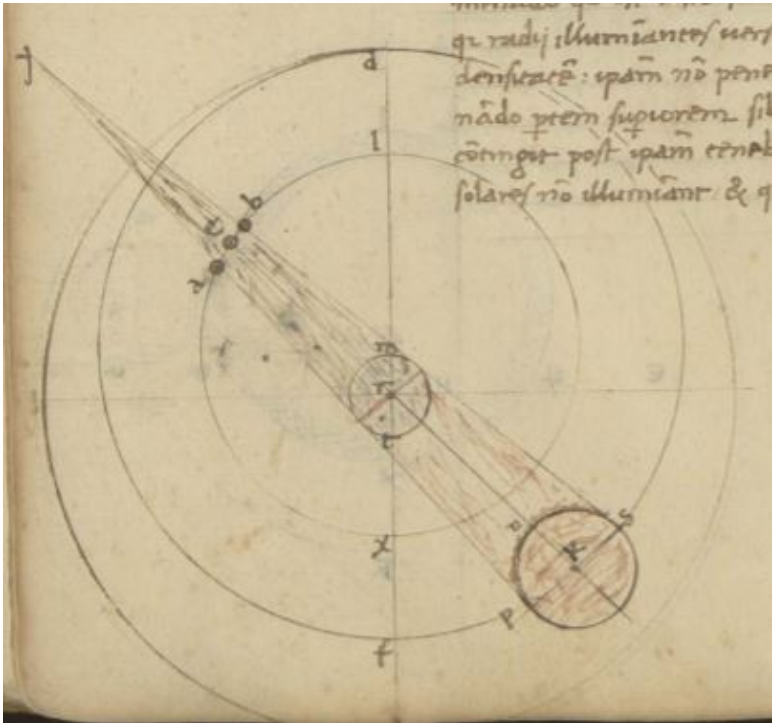 qr radij illumīantes vers
densitatē: ipam nō pene
nādo ptem supiorem sil
cōtingit post ipam teneb
solares nō illumīant & q
d
l
b
c
a
m
r
t
x
f
o
K
S
P